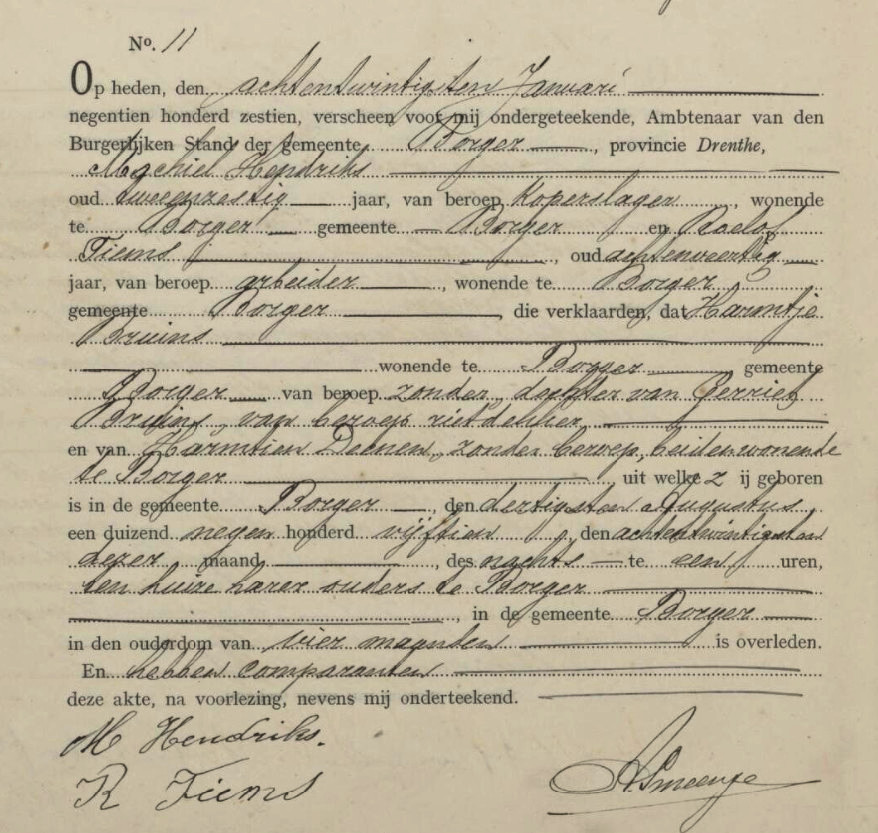 No. 11
Op heden, den achtentwintigsten Januari
negentien honderd zestien, verscheen voor mij ondergeteekende, Ambtenaar van den
Burgerlijken Stand der gemeente Borger, provincie Drenthe,
Machiel Hendriks
oud tweeenzestig jaar, van beroep koperslager, wonende
te Borger gemeente Borger en Roelof
Tiems, oud achtenveertig
jaar, van beroep arbeider, wonende te Borger
gemeente Borger, die verklaarden, dat Harmtje
Bruins
wonende te Borger gemeente
Borger van beroep zonder, dochter van Gerriet
Bruins, van beroep rietdekker
en van Harmtien Deenen, zonder beroep, beiden wonende
te Borger, uit welke zij geboren
is in de gemeente Borger, den dertigsten Augustus
een duizend negen honderd vijftien, den achtentwintigsten
dezer maand, des nachts te een uren,
ten huize harer ouders te Borger
, in de gemeente Borger
in den ouderdom van vier maanden is overleden.
En hebben comparanten
deze akte, na voorlezing, nevens mij onderteekend.
M Hendriks.
R Tiems